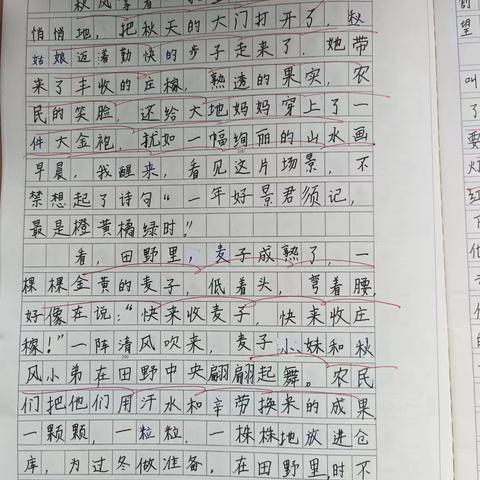 秋风
悄悄地，把秋天的大门打开了，秋
姑娘迈着勤快的步子走来了，她带
来了丰收的庄稼，熟透的果实，农
民的笑脸，还给大地妈妈穿上了一
件大金袍，犹如一幅绚丽的山水画。
早晨，我醒来，看见这片场景，不
禁想起了诗句“一年好景君须记，
最是橙黄橘绿时。”
看，田野里，麦子成熟了，一
棵棵金黄的麦子，低着头，弯着腰，
好像在说：“快来收麦子，快来收庄
稼！”一阵清风吹来，麦子小妹和秋
风小弟在田野中央翩翩起舞。农民
们把他们用汗水和辛劳换来的成果
一颗颗，一粒粒，一株株地放进仓
库，为过冬做准备。在田野里，时不